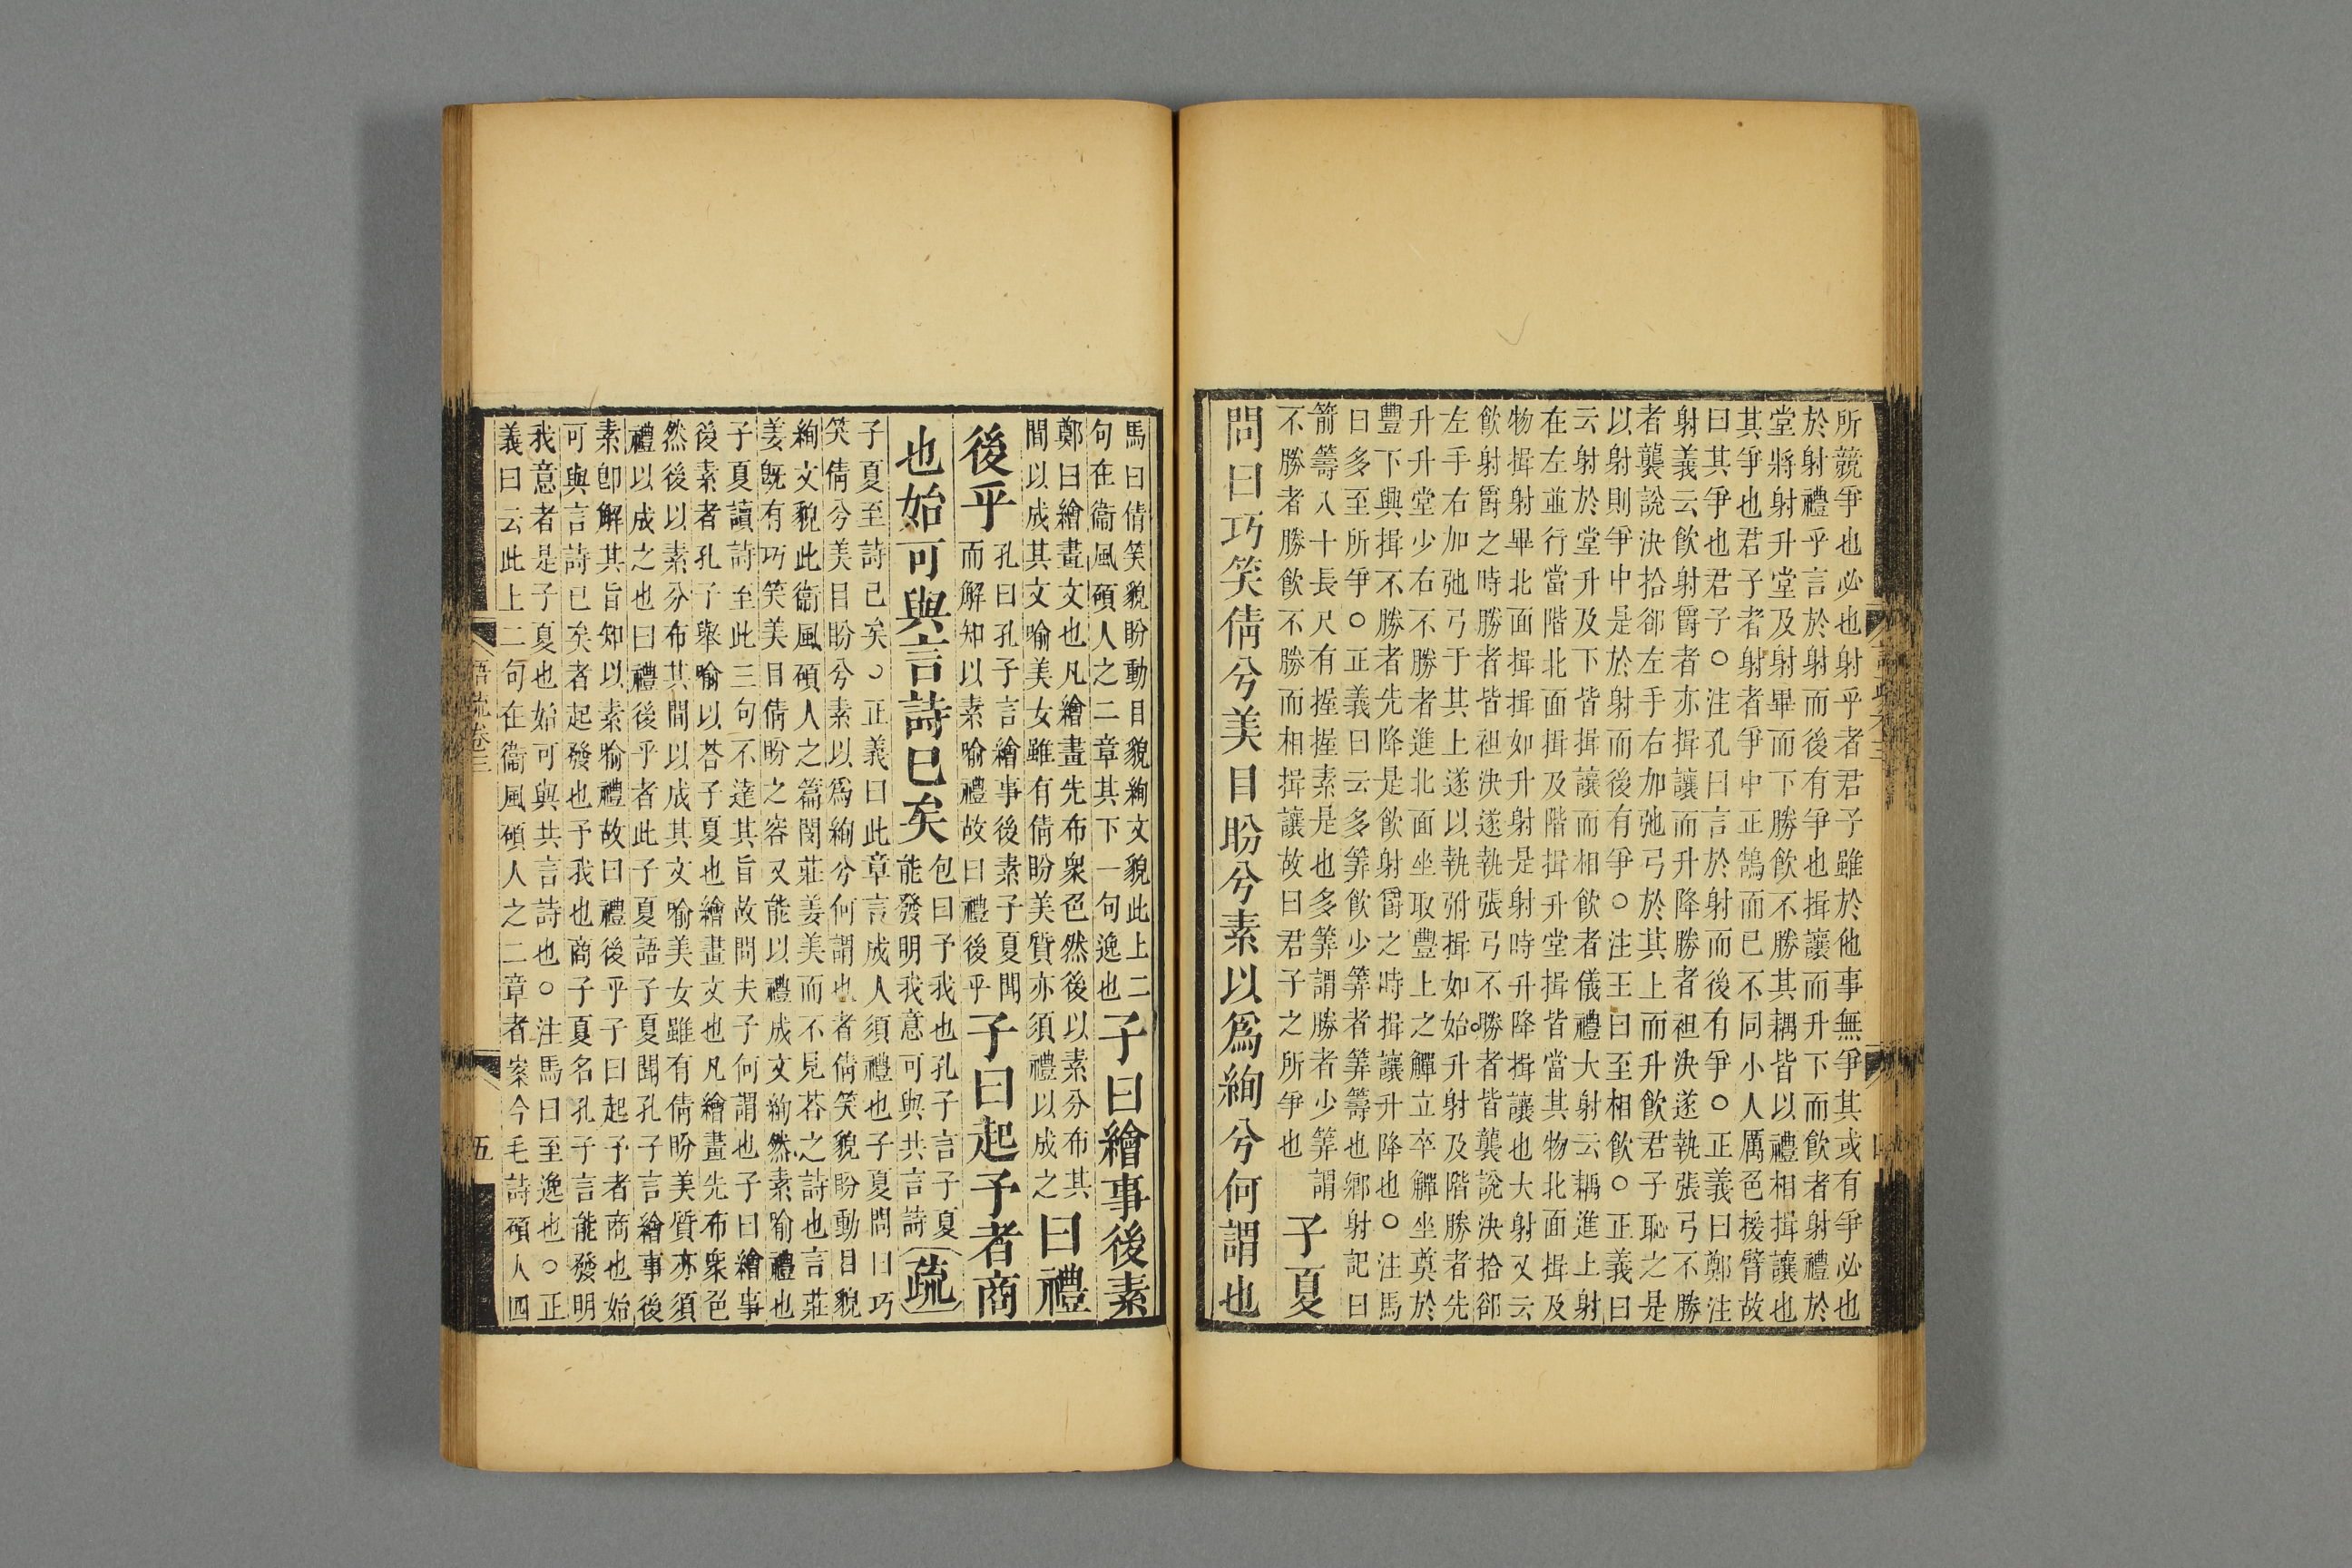 所競爭也必也射乎者君子雖於他事無爭其或有爭必也
於射禮乎言於射而後有爭也揖讓而升下而飲者射禮於
堂將射升堂及射畢而下勝飲不勝其耦皆以禮相揖讓也
其爭也君子者射者爭中正鵠而已不同小人厲色援臂故
曰其爭也君子○注孔曰言於射而後有爭○正義曰鄭注
射義云飲射爵者亦揖讓而升降勝者袒決遂執張弓不勝
者襲說決拾郤左手右加弛弓於其上而升飲君子恥之是
以射則爭中是於射而後有爭○注王曰至相飲○正義曰
云射於堂升及下皆揖讓而相飲者儀禮大射云耦進上射
在左並行當階北面揖及階揖升堂揖皆當其物北面揖及
物揖射畢北面揖揖如升射是射時升降揖讓也大射又云
飲射爵之時勝者皆袒決遂執張弓不勝者皆襲說決拾郤
左手右加弛弓于其上遂以執弣揖如始升射及階勝者先
升升堂少右不勝者進北面坐取豐上之觶立卒觶坐奠於
豐下興揖不勝者先降是飲射爵之時揖讓升降也○注馬
曰多至所爭○正義曰云多筭飲少筭者筭籌也鄉射記曰
箭籌八十長尺有握握素是也多筭謂勝者少筭謂
不勝者勝飲不勝而相揖讓故曰君子之所爭也
子夏
問曰巧笑倩兮美目盼兮素以爲絢兮何謂也
馬曰倩笑貌盼動目貌絢文貌此上二
句在衞風碩人之二章其下一句逸也
子曰繪事後素
鄭曰繪畫文也凡繪畫先布衆色然後以素分布其
間以成其文喻美女雖有倩盼美質亦須禮以成之
曰禮
後乎
孔曰孔子言繪事後素子夏聞
而解知以素喻禮故曰禮後乎
子曰起予者商
也始可與言詩已矣
包曰予我也孔子言子夏
能發明我意可與共言詩
疏
子夏至詩已矣○正義曰此章言成人須禮也子夏問曰巧
笑倩兮美目盼兮素以爲絢兮何謂也者倩笑貌盼動目貌
絢文貌此衞風碩人之篇閔莊姜美而不見荅之詩也言莊
姜旣有巧笑美目倩盼之容又能以禮成文絢然素喻禮也
子夏讀詩至此三句不達其旨故問夫子何謂也子曰繪事
後素者孔子舉喻以荅子夏也繪畫文也凡繪畫先布衆色
然後以素分布其間以成其文喻美女雖有倩盼美質亦須
禮以成之也曰禮後乎者此子夏語子夏聞孔子言繪事後
素卽解其旨知以素喻禮故曰禮後乎子曰起予者商也始
可與言詩已矣者起發也予我也商子夏名孔子言能發明
我意者是子夏也始可與共言詩也○注馬曰至逸也○正
義曰云此上二句在衞風碩人之二章者案今毛詩碩人四
語疏卷三
五